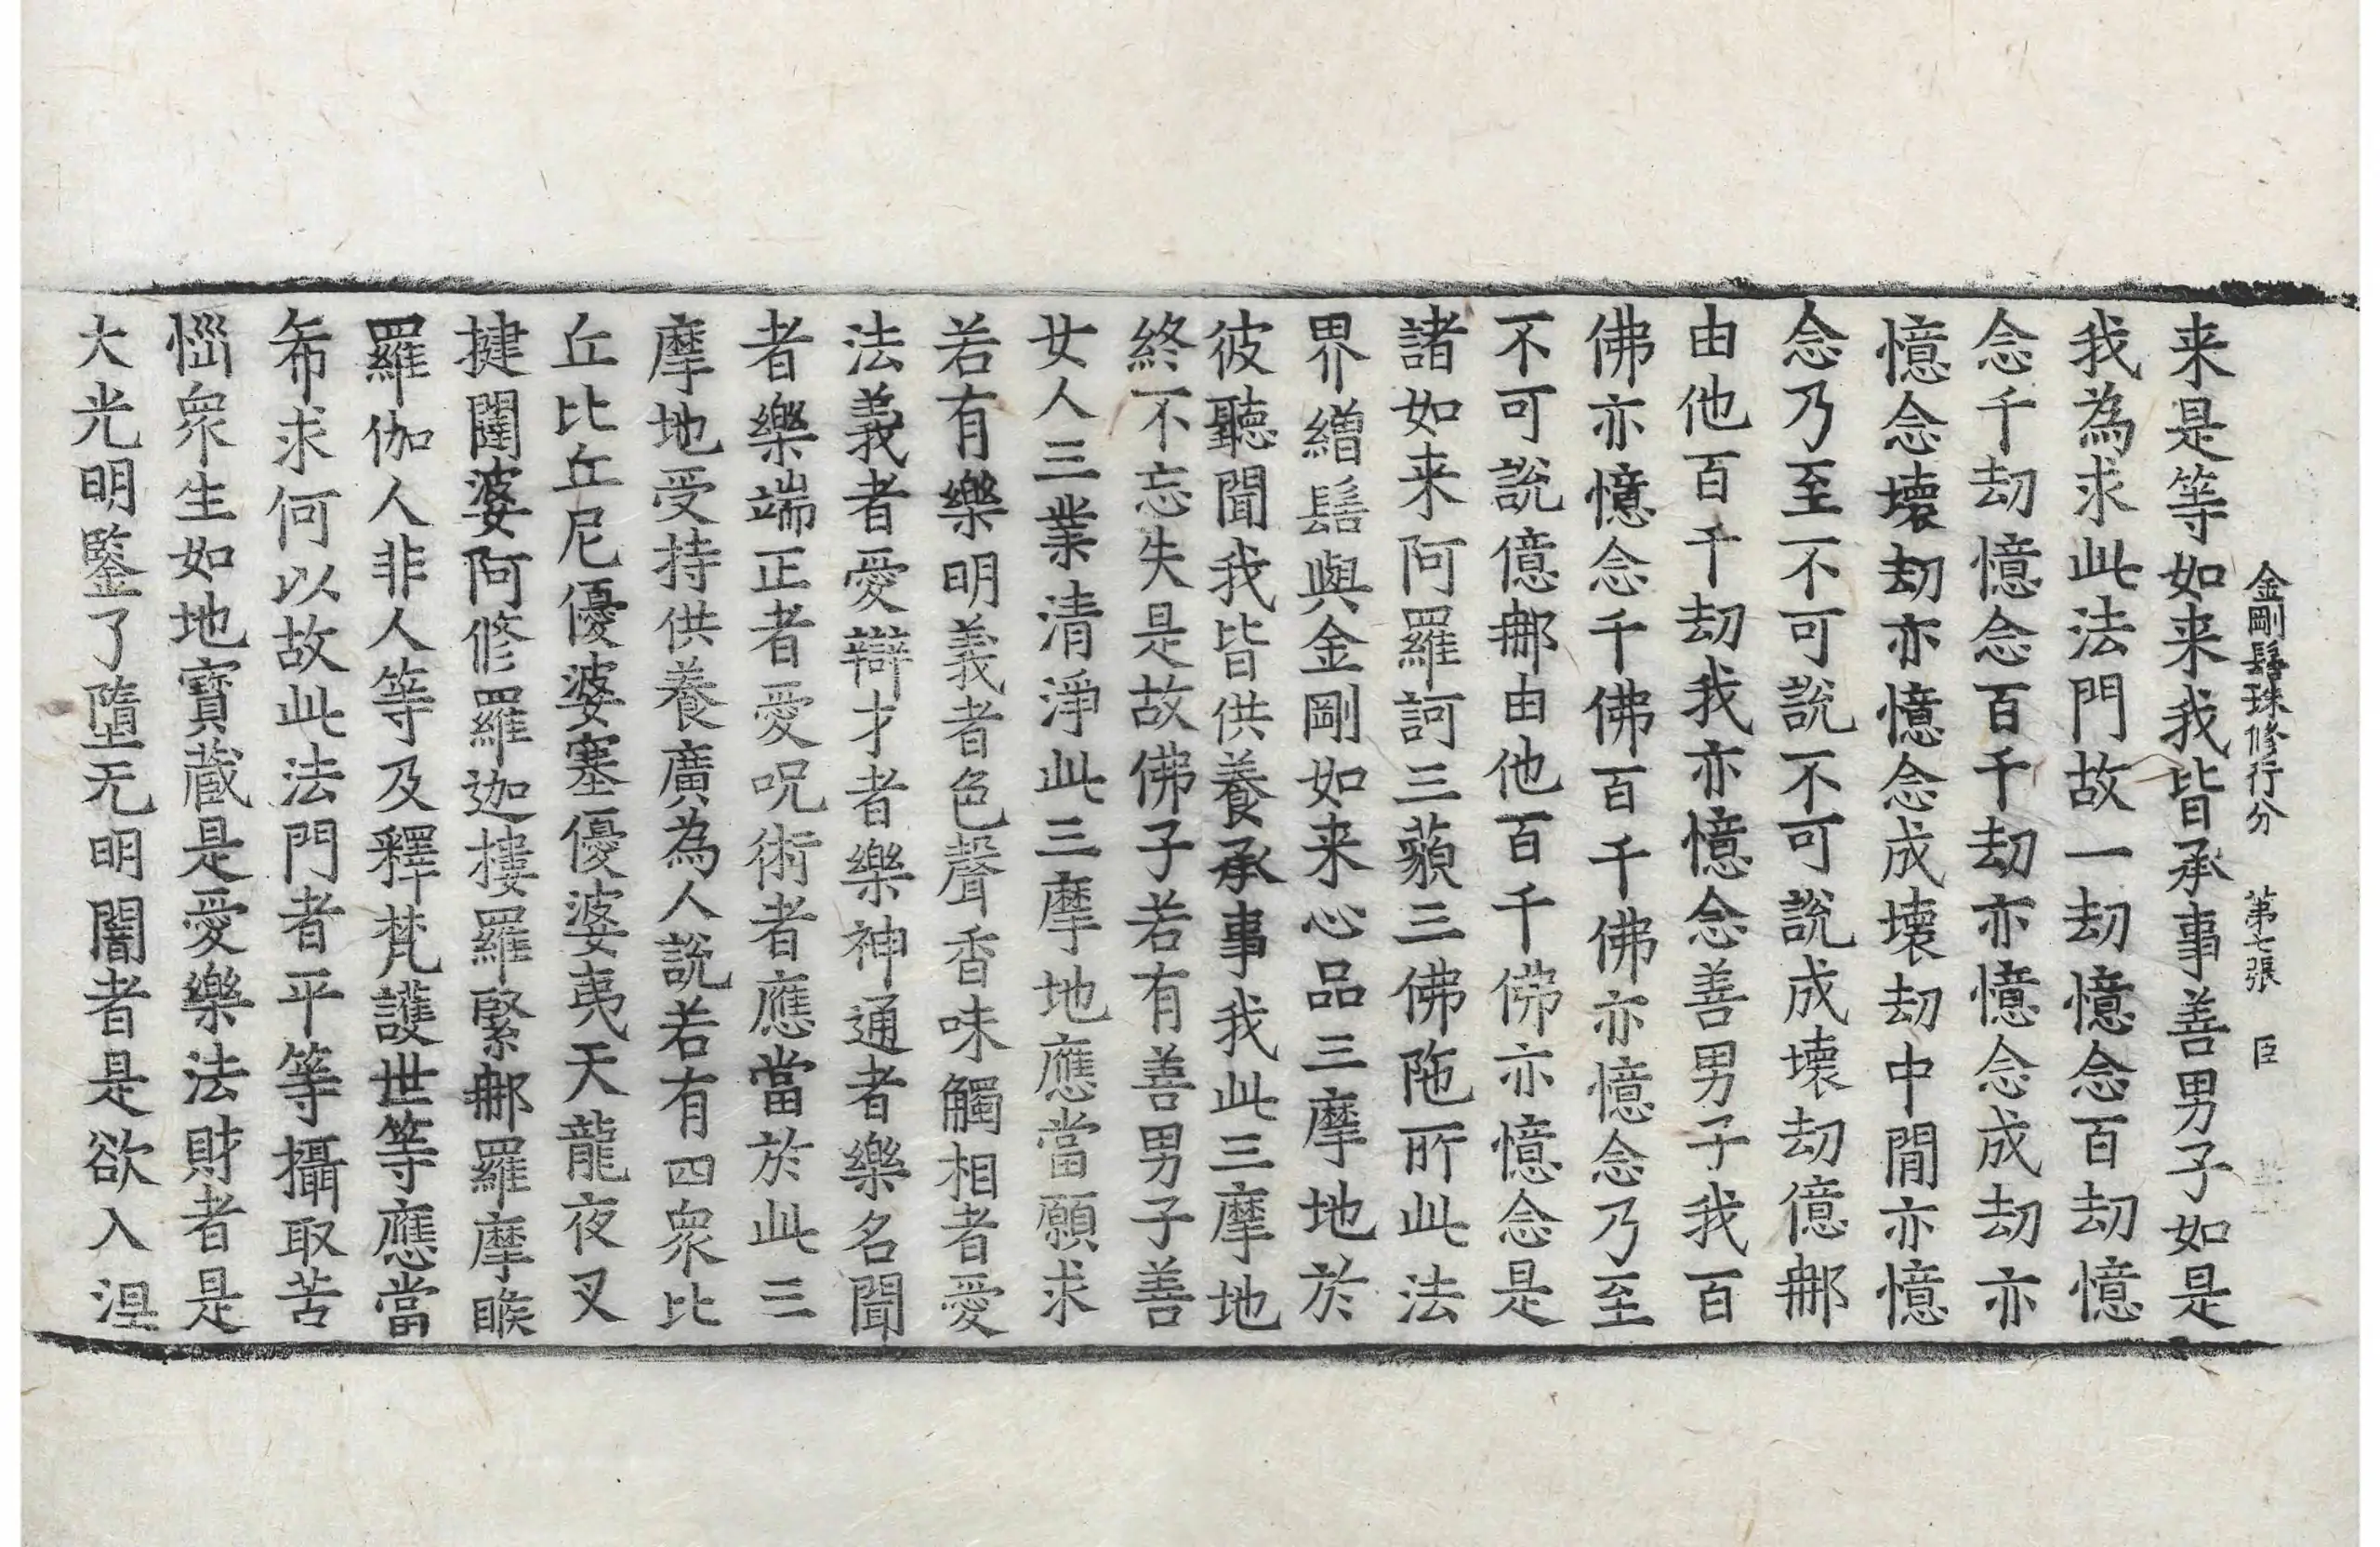 金剛髻珠修行分 第七張 臣
来是等如来我皆承事善男子如是
我為求此法門故一劫憶念百劫憶
念千劫憶念百千劫亦憶念成劫亦
憶念壞劫亦憶念成壞劫中間亦憶
念乃至不可說不可說成壞劫億那
由他百千劫我亦憶念善男子我百
佛亦憶念千佛百千佛亦憶念乃至
不可說億那由他百千佛亦憶念是
諸如来阿羅訶三藐三佛陁所此法
界繒髻與金剛如来心品三摩地於
彼聽聞我皆供養承事我此三摩地
終不忘失是故佛子若有善男子善
女人三業清淨此三摩地應當願求
若有樂明義者色聲香味觸相者愛
法義者愛辯才者樂神通者樂名聞
者樂端正者愛呪術者應當於此三
摩地受持供養廣為人說若有四衆比
丘比丘尼優婆塞優婆夷天龍夜叉
揵闥婆阿修羅迦樓羅緊那羅摩睺
羅伽人非人等及釋梵護世等應當
希求何以故此法門者平等攝取苦
惱衆生如地寶藏是愛樂法財者是
大光明鑒了墮无明闇者是欲入涅